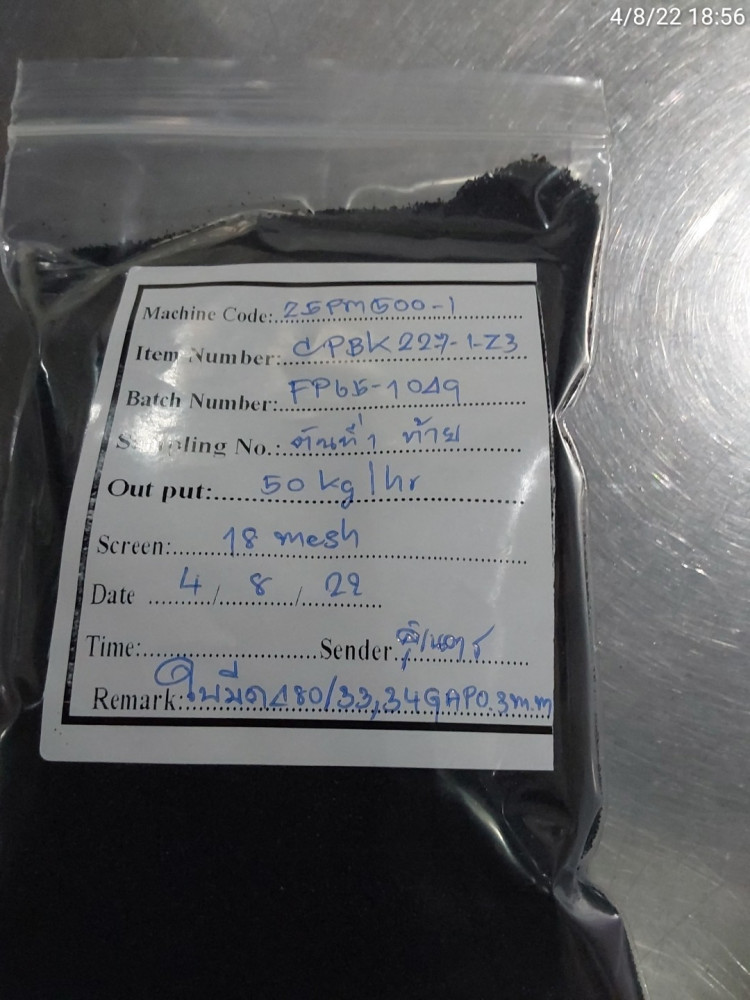 4/8/22 18:56
Machine Code: 25PM500-1
Item Number: CPBK227-1-Z3
Batch Number: FP65-1049
Sampling No.: ตันที่ 1 ท้าย
Out put: 50 kg/hr
Screen: 18 mesh
Date 4/8/22
Time: Sender
Remark: ใบมีด 480/33,34 GAP 0.3 m.m